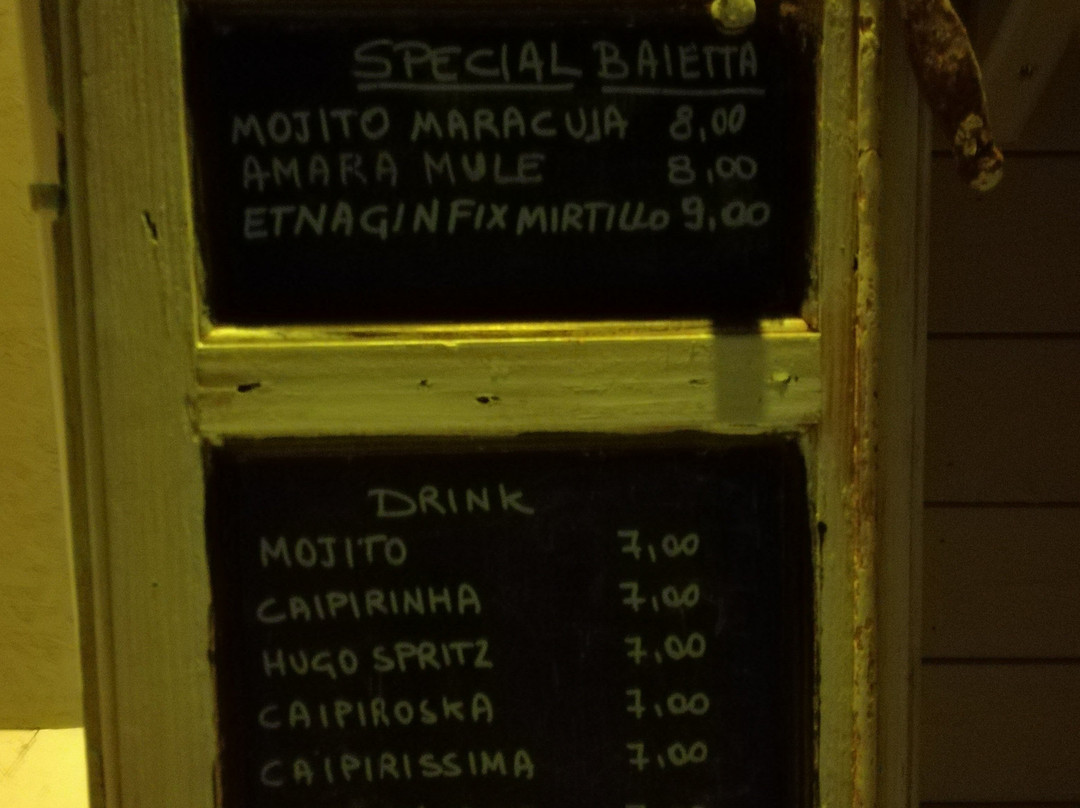 SPECIAL BAIETTA
MOJITO MARACUJA 8,00
AMARA MULE 8,00
ETNAGINFIX MIRTILLO 9,00
DRINK
MOJITO 7,00
CAIPIRINHA 7,00
HUGO SPRITZ 7,00
CAIPIROSKA 7,00
CAIPIRISSIMA 7,00